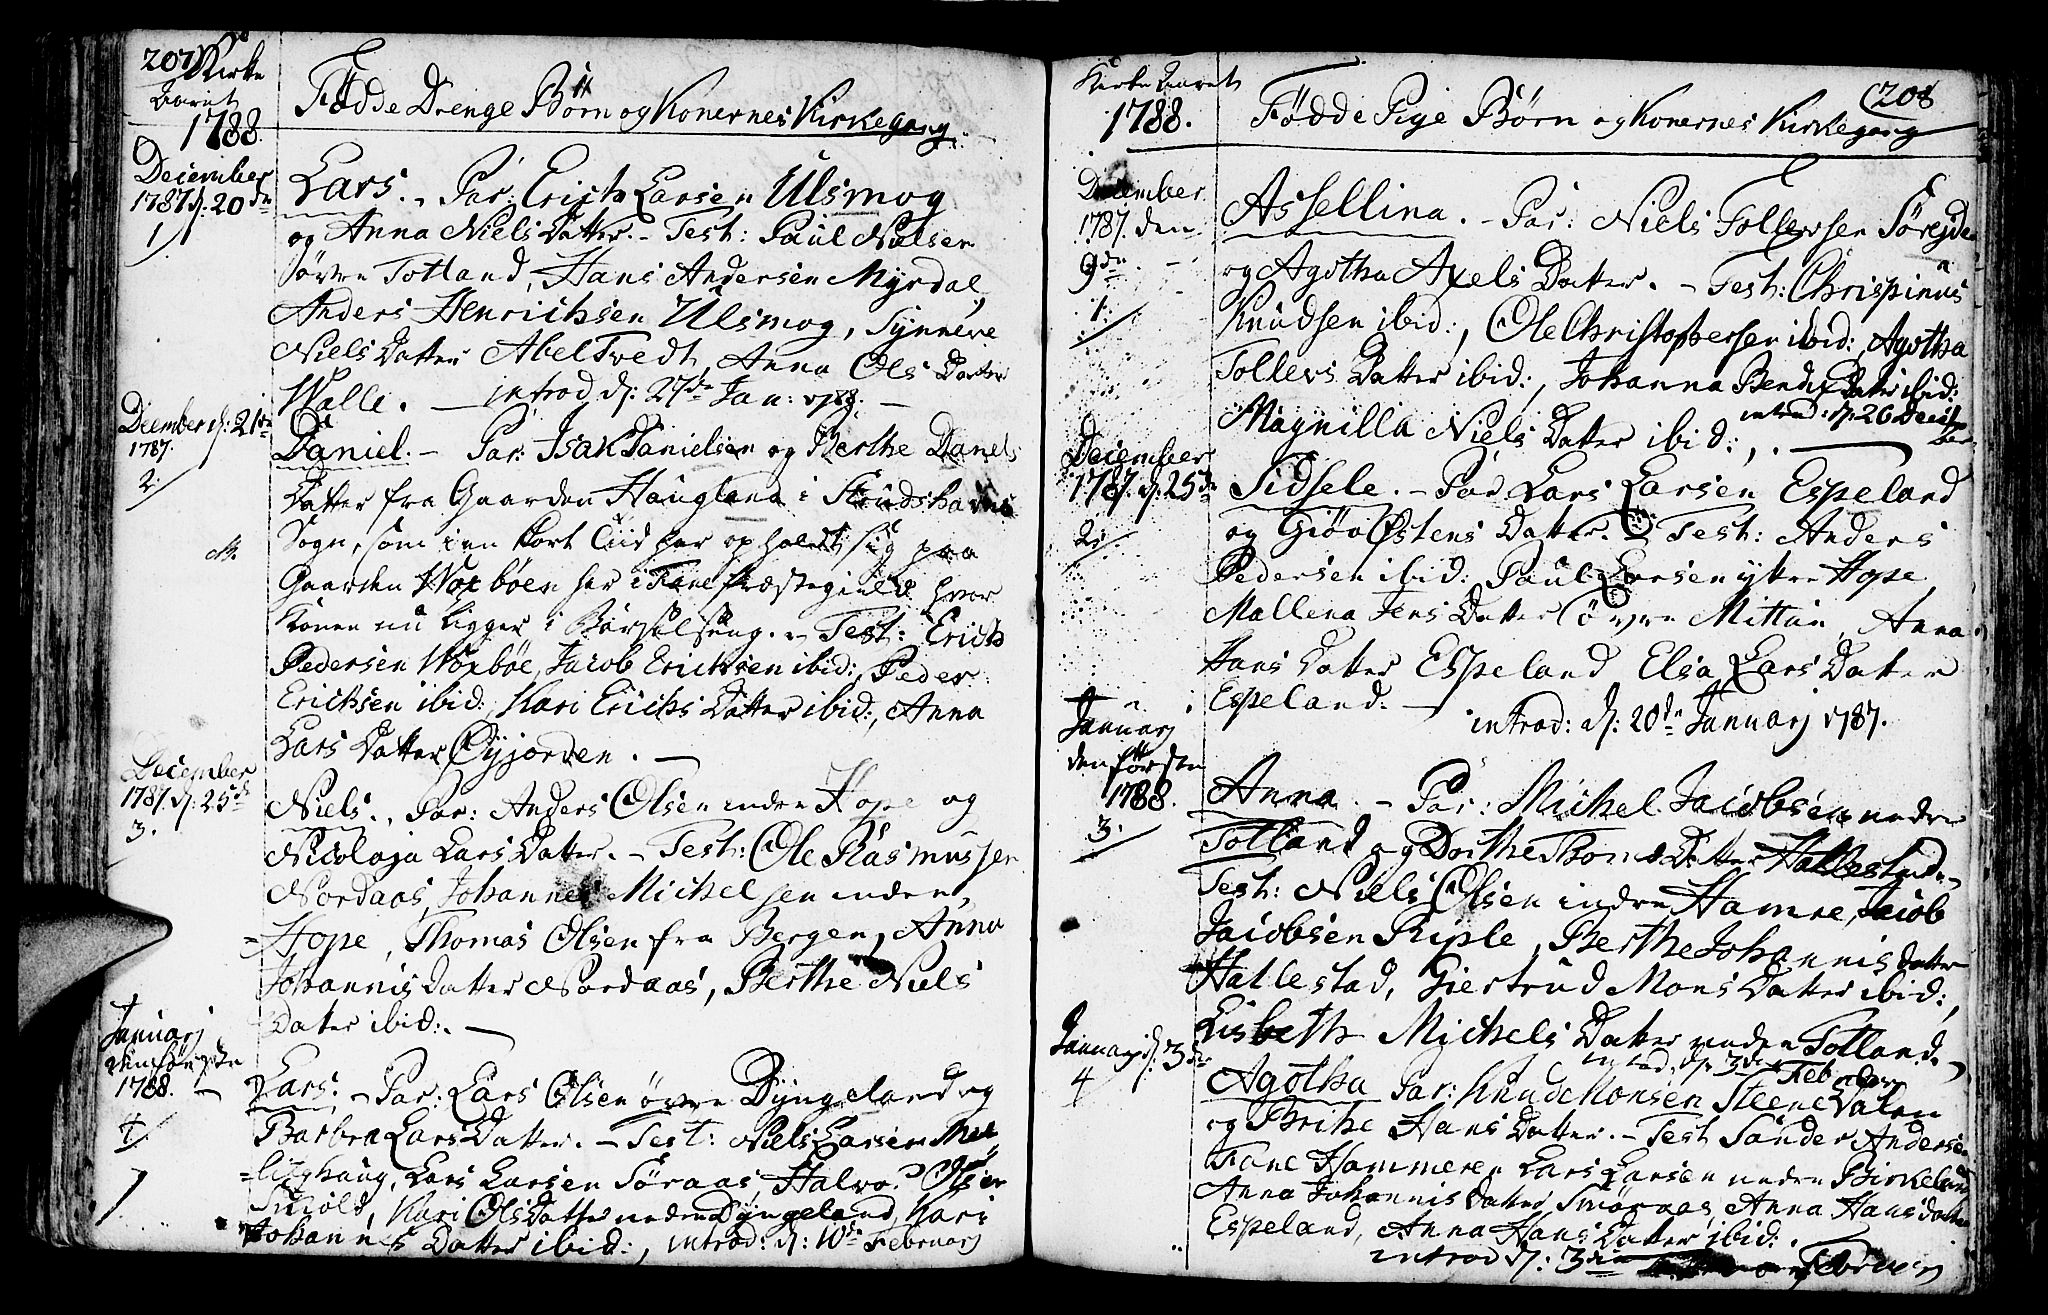 207 Kirke
Aaret
1788.
Födde Drenge Börn og Konernes Kirkegang.
December
1787 d: 20de
1
Lars. - Par: Erich Larsen Ulsmog
og Anna Niels Datter. - Test: Paul Nielsen
övre Totland, Hans Andersen Myrdal,
Anders Henrichsen Ulsmog, Synneve
Niels Datter Abel Tvedt, Anna Ols Datter
Walle. - introd d: 27de Jan: 1788. -
December d: 21de
1787.
2.
Daniel. - Par: Isak Danielsen og Berthe Daniels
Datter fra Gaarden Haugland i
Sogn, som i en kort Tiid har opholdt sig paa
Gaarden Woxböen her i Fane Præstegield hvor
Konen nu ligger i Barselseng. - Test: Erich
Pedersen Woxböe, Jacob Erichsen ibid:, Peder
Erichsen ibid:, Kari Erichs Datter ibid:, Anna
Lars Datter Öyjorden. -
December
1787. d: 25de
3.
Niels. Par: Anders Olsen indre Hope og
Nicolaja Lars Datter. - Test: Ole Rasmussen
Nordaas, Johannes Michelsen indre
Hope, Thomas Olsen fra Bergen, Anna
Johannis Datter Nordaas, Berthe Niels
Datter ibid:. -
Januarj
den förste
1788. -
4
Lars. - Par: Lars Olsen övre Dyngeland og
Barbra Lars Datter. - Test: Niels Larsen Mid
=litzhaug, Lars Larsen Söraas, Halvor Olsen
Smiold, Kari Ols Datter nedre Dyngeland, Kari
Johannes Datter ibid:, introd: d: 10de Februarj
Kirke Aaret
1788.
Födde Pige Börn og Konernes Kirkegang
208
December
1787. den
9de
1.
Assellina. - Par: Niels Tollevsen Söreyde
og Agotha Axels Datter. - Test: Chrispinus
Knudsen ibid:, Ole Christophersen ibid:, Agotha
Tollevs Datter ibid:, Johanna Bendix Datter ibid:
Magnilla Niels Datter ibid:, . -
introd: d: 26 Decem
ber
December
1787. d: 25de
2.
Sidsele. - Par Lars Larsen Espeland
og Giöv Östens Datter. - Test: Anders
Pedersen ibid: Paul Larsen ytre Hope
Mallena Jens Datter övre Mittun, Anna
Hans Datter Espeland Elsa Lars Datter
Espeland. -
introd: d: 20de Januarj 1787.
Januarj
den förste
1788.
3.
Anna. - Par: Michel Jacobsen nedre
Totland og Dorthe Thoms Datter Hallestad. -
Test: Niels Olsen indre Hamre, Jacob
Jacobsen Riple, Berthe Johannis Datter
Hallestad, Giertrud Mons Datter ibid:,
Lisbeth Michels Datter neden Totland. -
introd: d: 3de
Februarj
Januarj d: 3de
4
Agotha Par: Knud Monsen Steens Dalen
og Brithe Hans Datter. - Test Sander Andersen
Fane Hammeren Lars Larsen nedre Birkeland
Anna Johannis Datter Smöraas, Anna Hans Datter
Espeland, Anna Hans Datter ibid:.
introd d: 3die Februarj